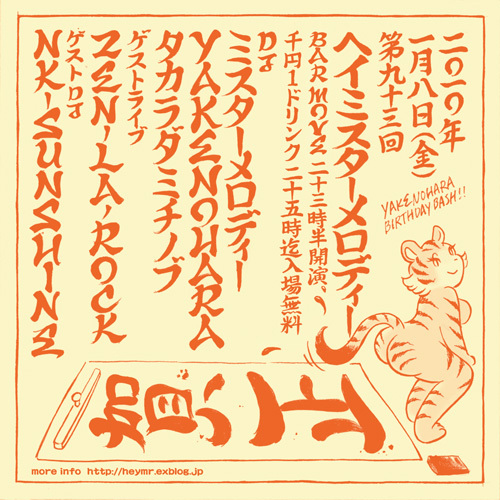 二〇一〇年
一月八日(金)
第九十三回
YAKENOHARA
BIRTHDAY BASH!!
ヘイミスターメロディー
BAR MOVE 二十三時半開演、
千円1ドリンク 二十五時迄入場無料
DJ
ミスターメロディー
YAKENOHARA
タカラダミチノブ
ゲストライブ
ZEN-LA-ROCK
ゲストDJ
NK-SUNSHINE
賀正
more info http://heymr.exblog.jp